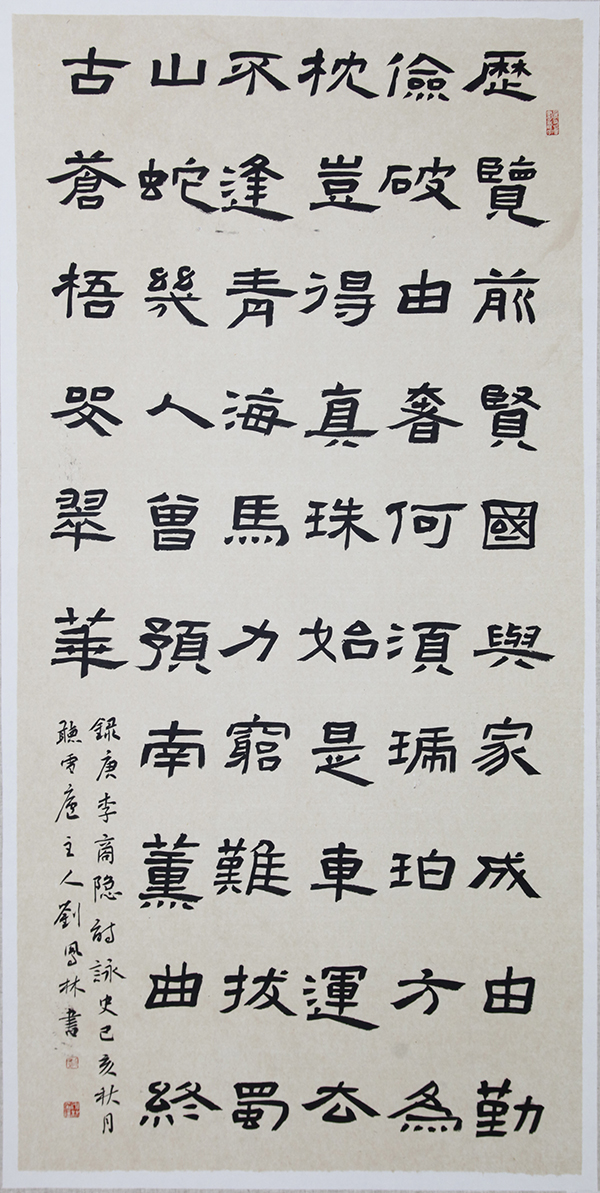 歷覽前賢國與家成由勤
儉破由奢何須琥珀方為
枕豈得真珠始是車運去
不逢青海馬力窮難拔蜀
山蛇幾人曾預南薰曲終
古蒼梧哭翠華
録唐李商隐詩詠史己亥秋月
聽雪廬主人劉鳳林書